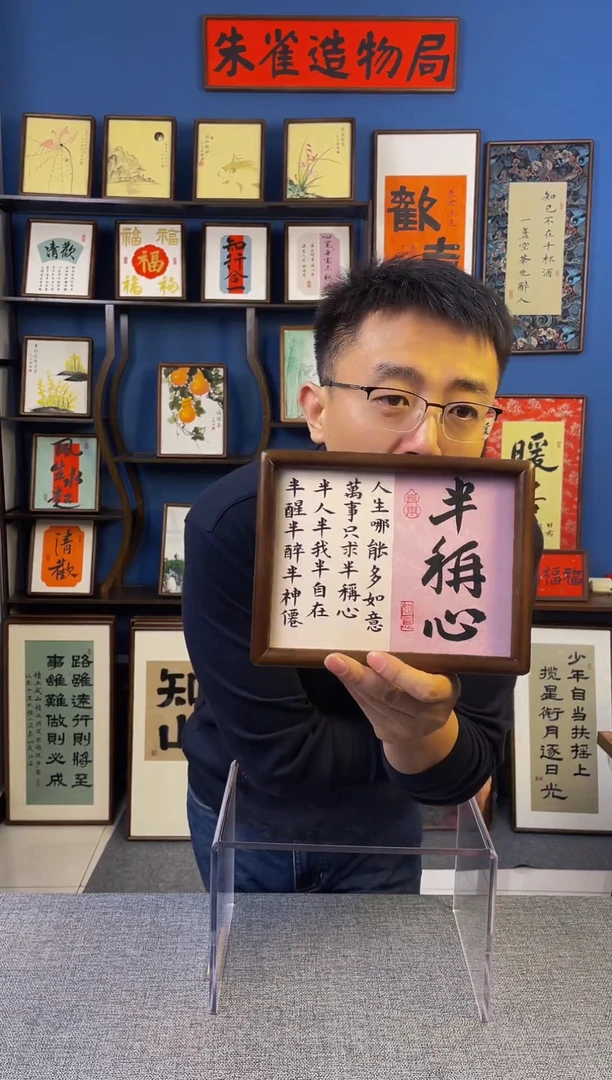 朱雀造物局
清歡
福
福
福
福
福
知行合一
心寬
歡
知己不在千杯酒
一盞空茶也醉人
風生水起
清歡
暖
福福
半稱心
人生哪能多如意
萬事只求半稱心
半人半我半自在
半醒半醉半神僊
路雖遠行則將至
事雖難做則必成
知
山
少年自当扶摇上
揽星衔月逐日光